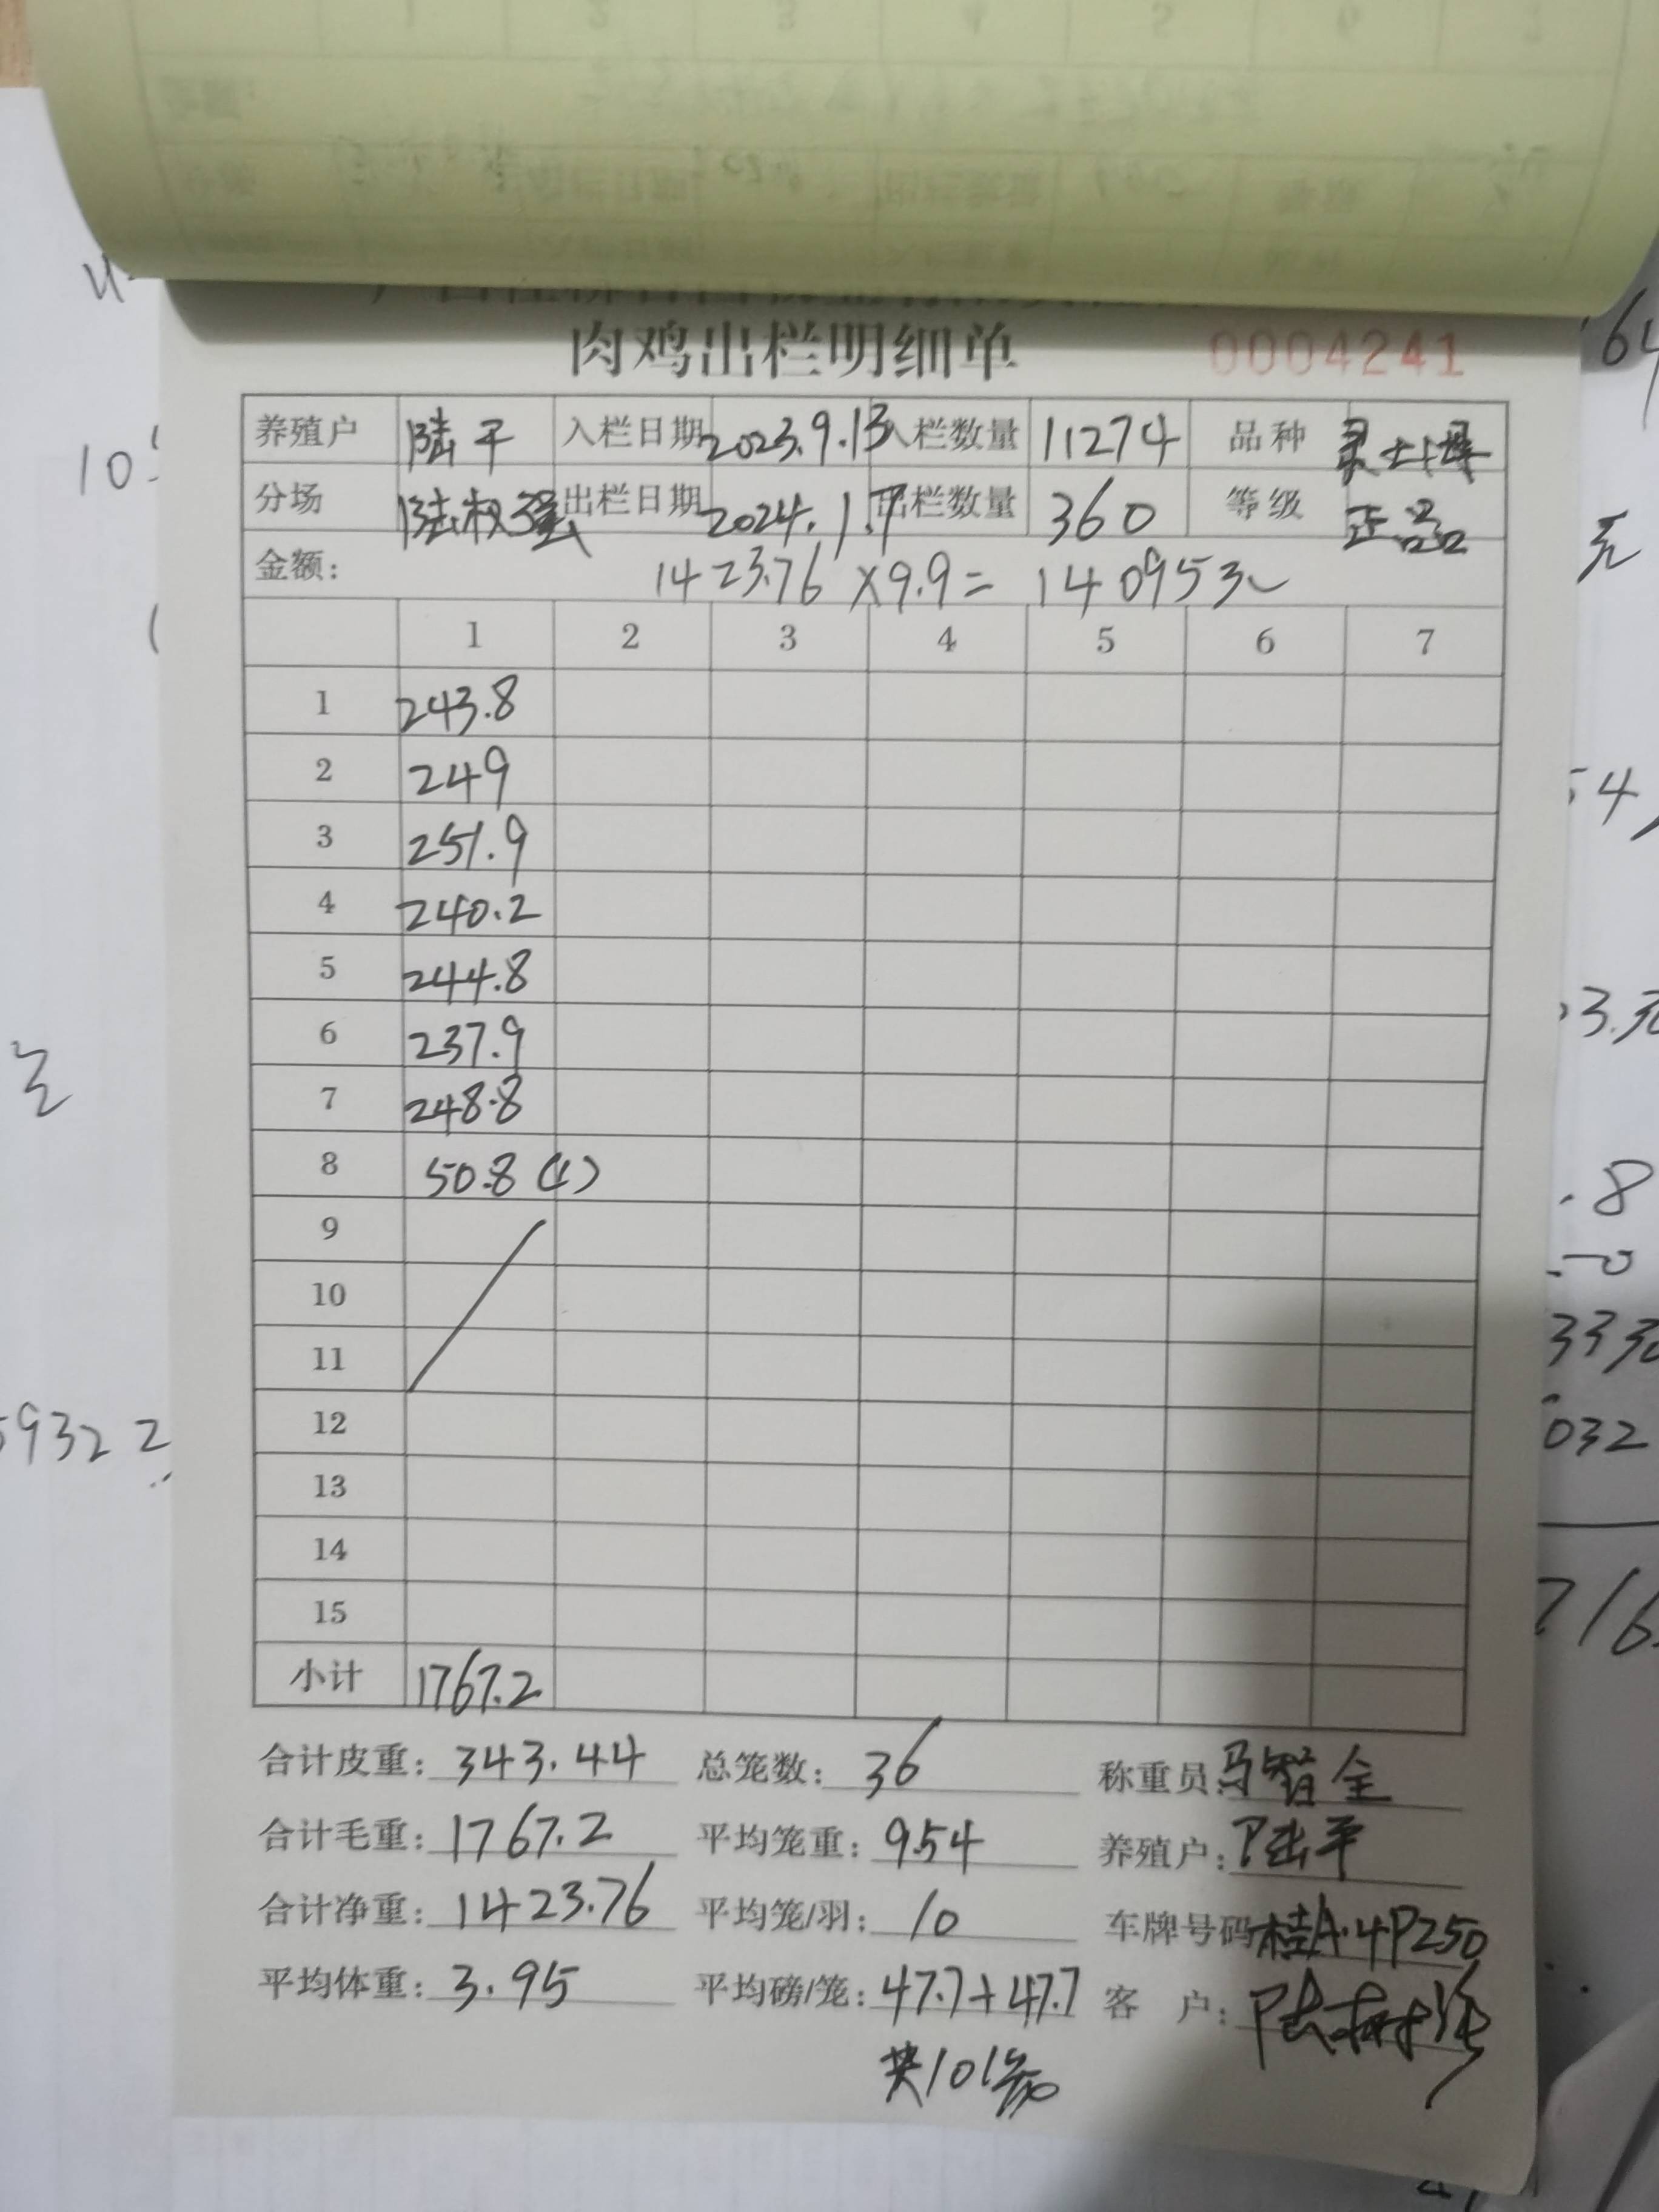 肉鸡出栏明细单 0004241
养殖户 陆平 入栏日期 2023.9.13 入栏数量 11274 品种
分场 陆权强 出栏日期 2024.1.7 出栏数量 360 等级 正品
金额: 1423.76 ×9.9= 140953
1 2 3 4 5 6 7
1 243.8
2 249
3 251.9
4 240.2
5 244.8
6 237.9
7 248.8
8 50.8 (1)
9
10
11
12
13
14
15
小计 1767.2
合计皮重: 343.44 总笼数: 36 称重员: 马智全
合计毛重: 1767.2 平均笼重: 9.54 养殖户: 陆平
合计净重: 1423.76 平均笼/羽: 10 车牌号码 桂A·4P250
平均体重: 3.95 平均磅/笼: 47.7+47.7 客 户:
共101